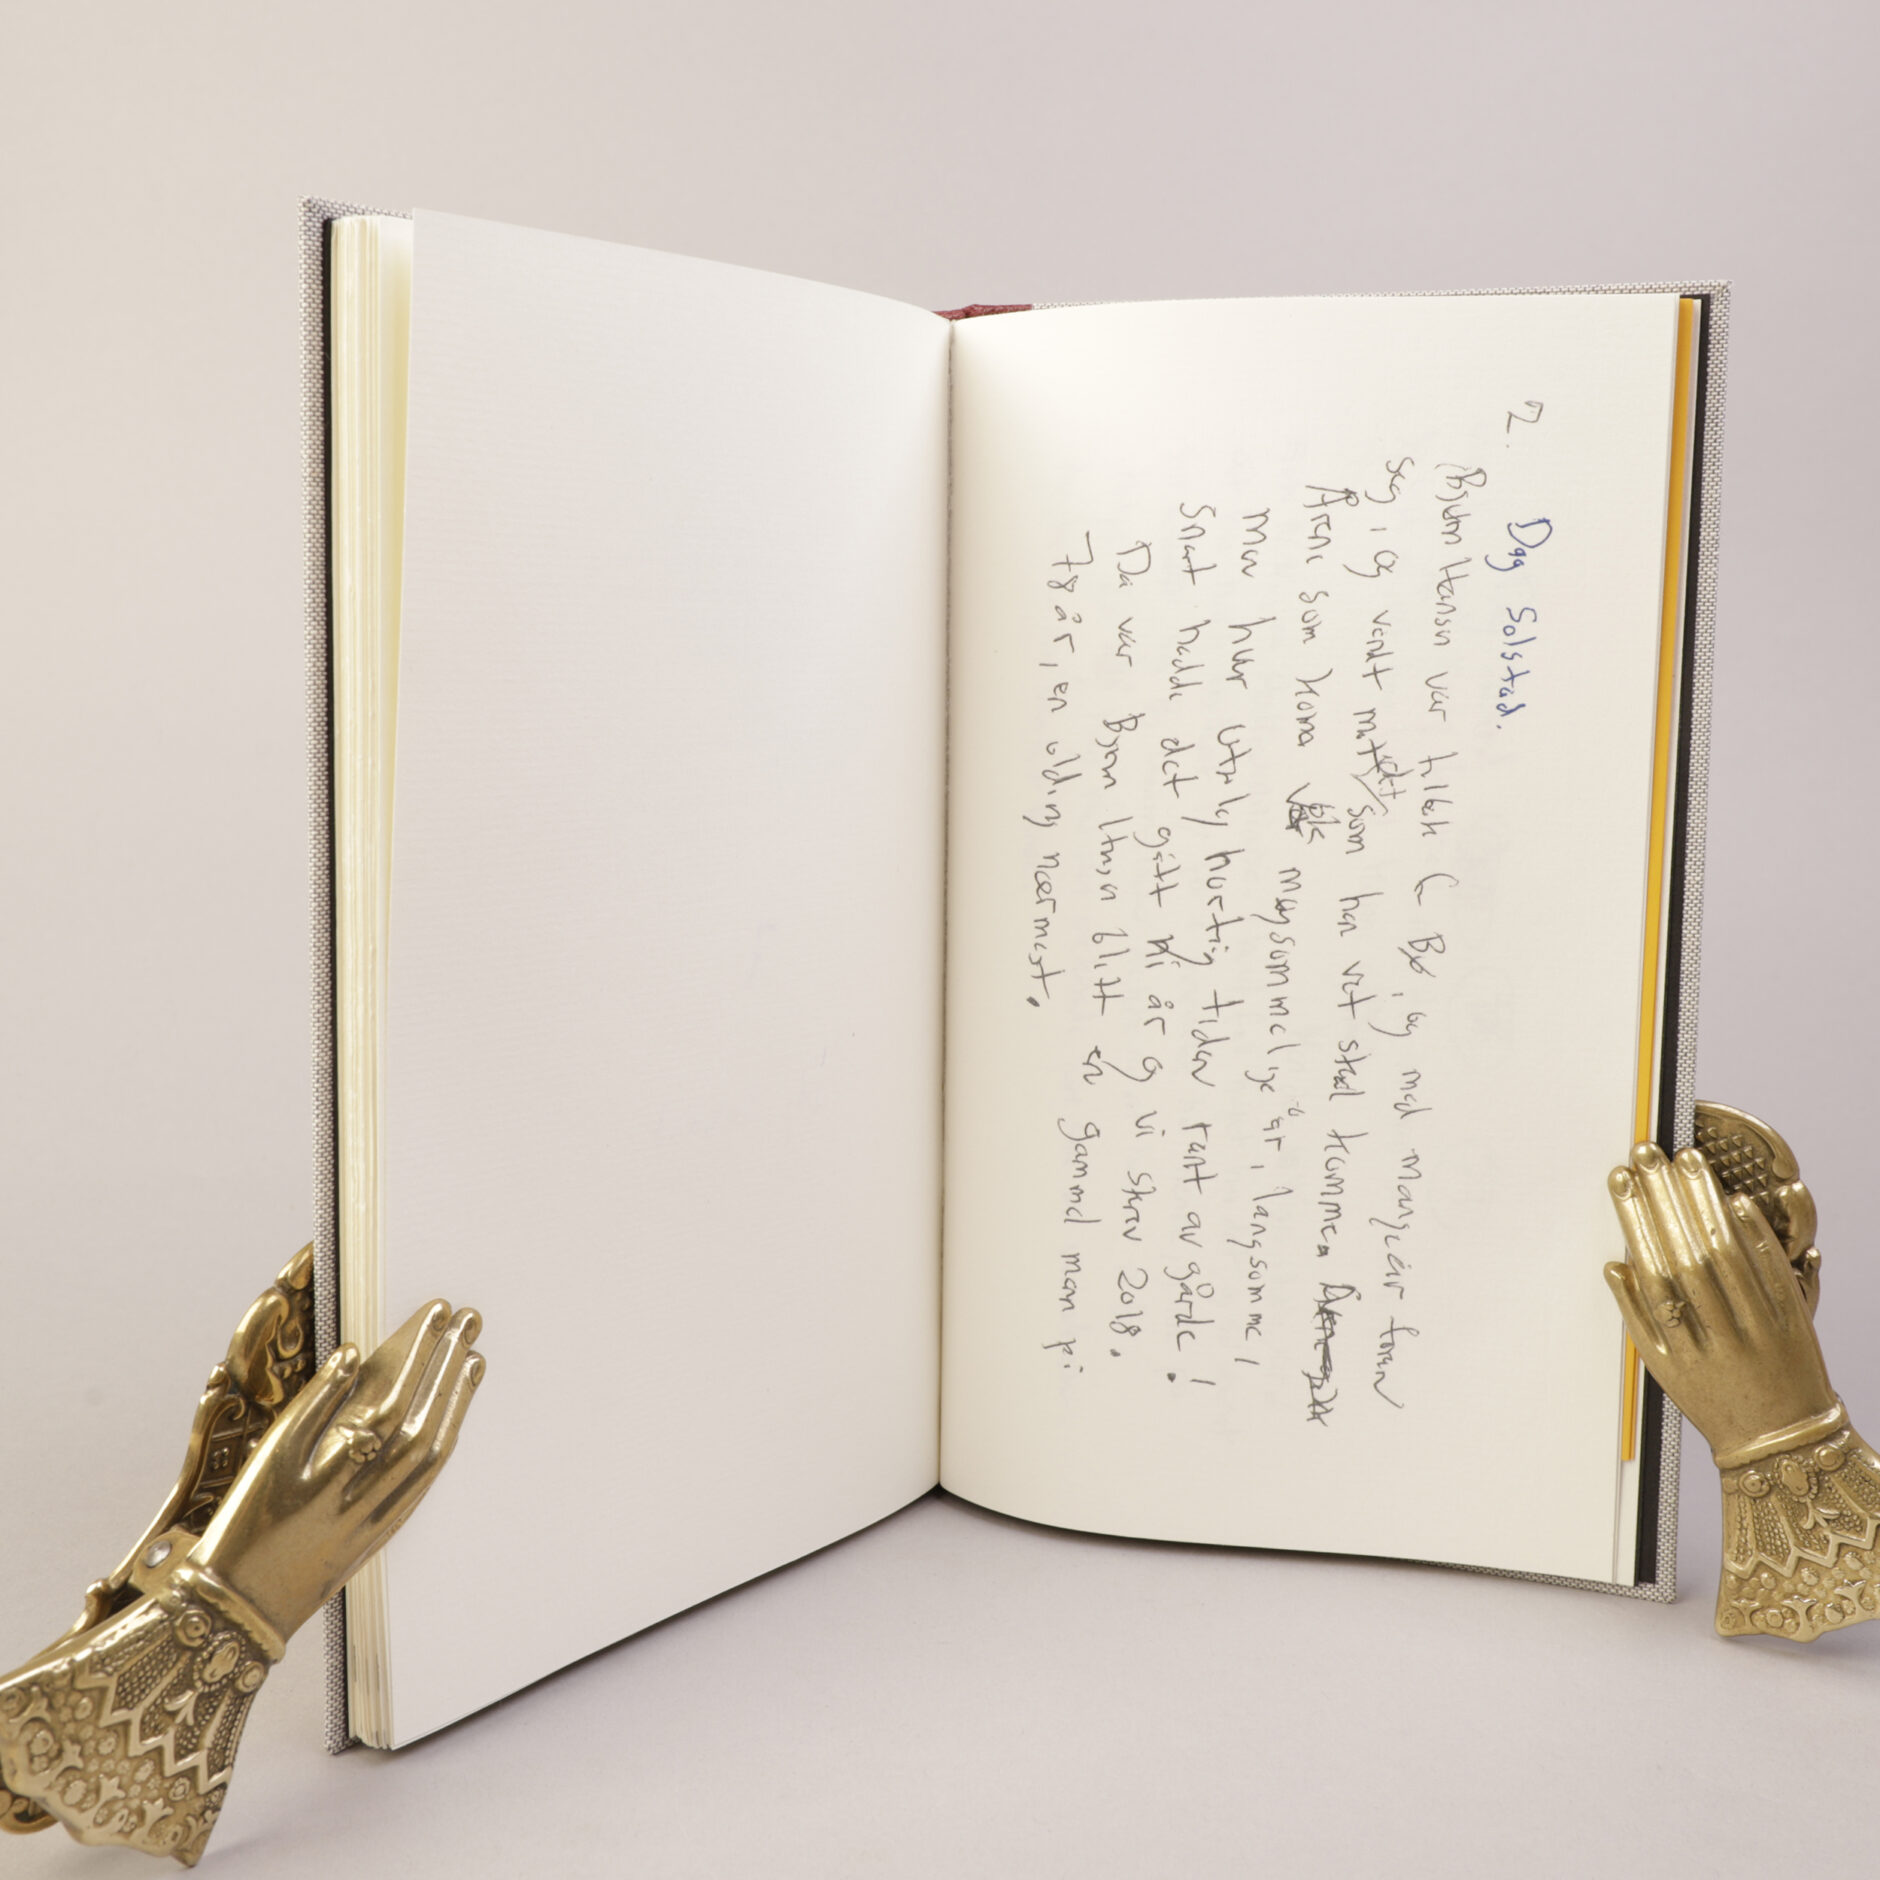 2. Dag Solstad.
Bjørn Hansen var tilbake i Bø, og med mange år foran
seg, og vendt mot det som han vet skal komme.
Årene som kom ble møysommelige år, langsomme!
Men hvor utrolig hurtig tiden rant av gårde!
Snart hadde det gått ni år og vi skrev 2018.
Da var Bjørn Hansen blitt en gammel mann på
78 år, en olding nærmest.